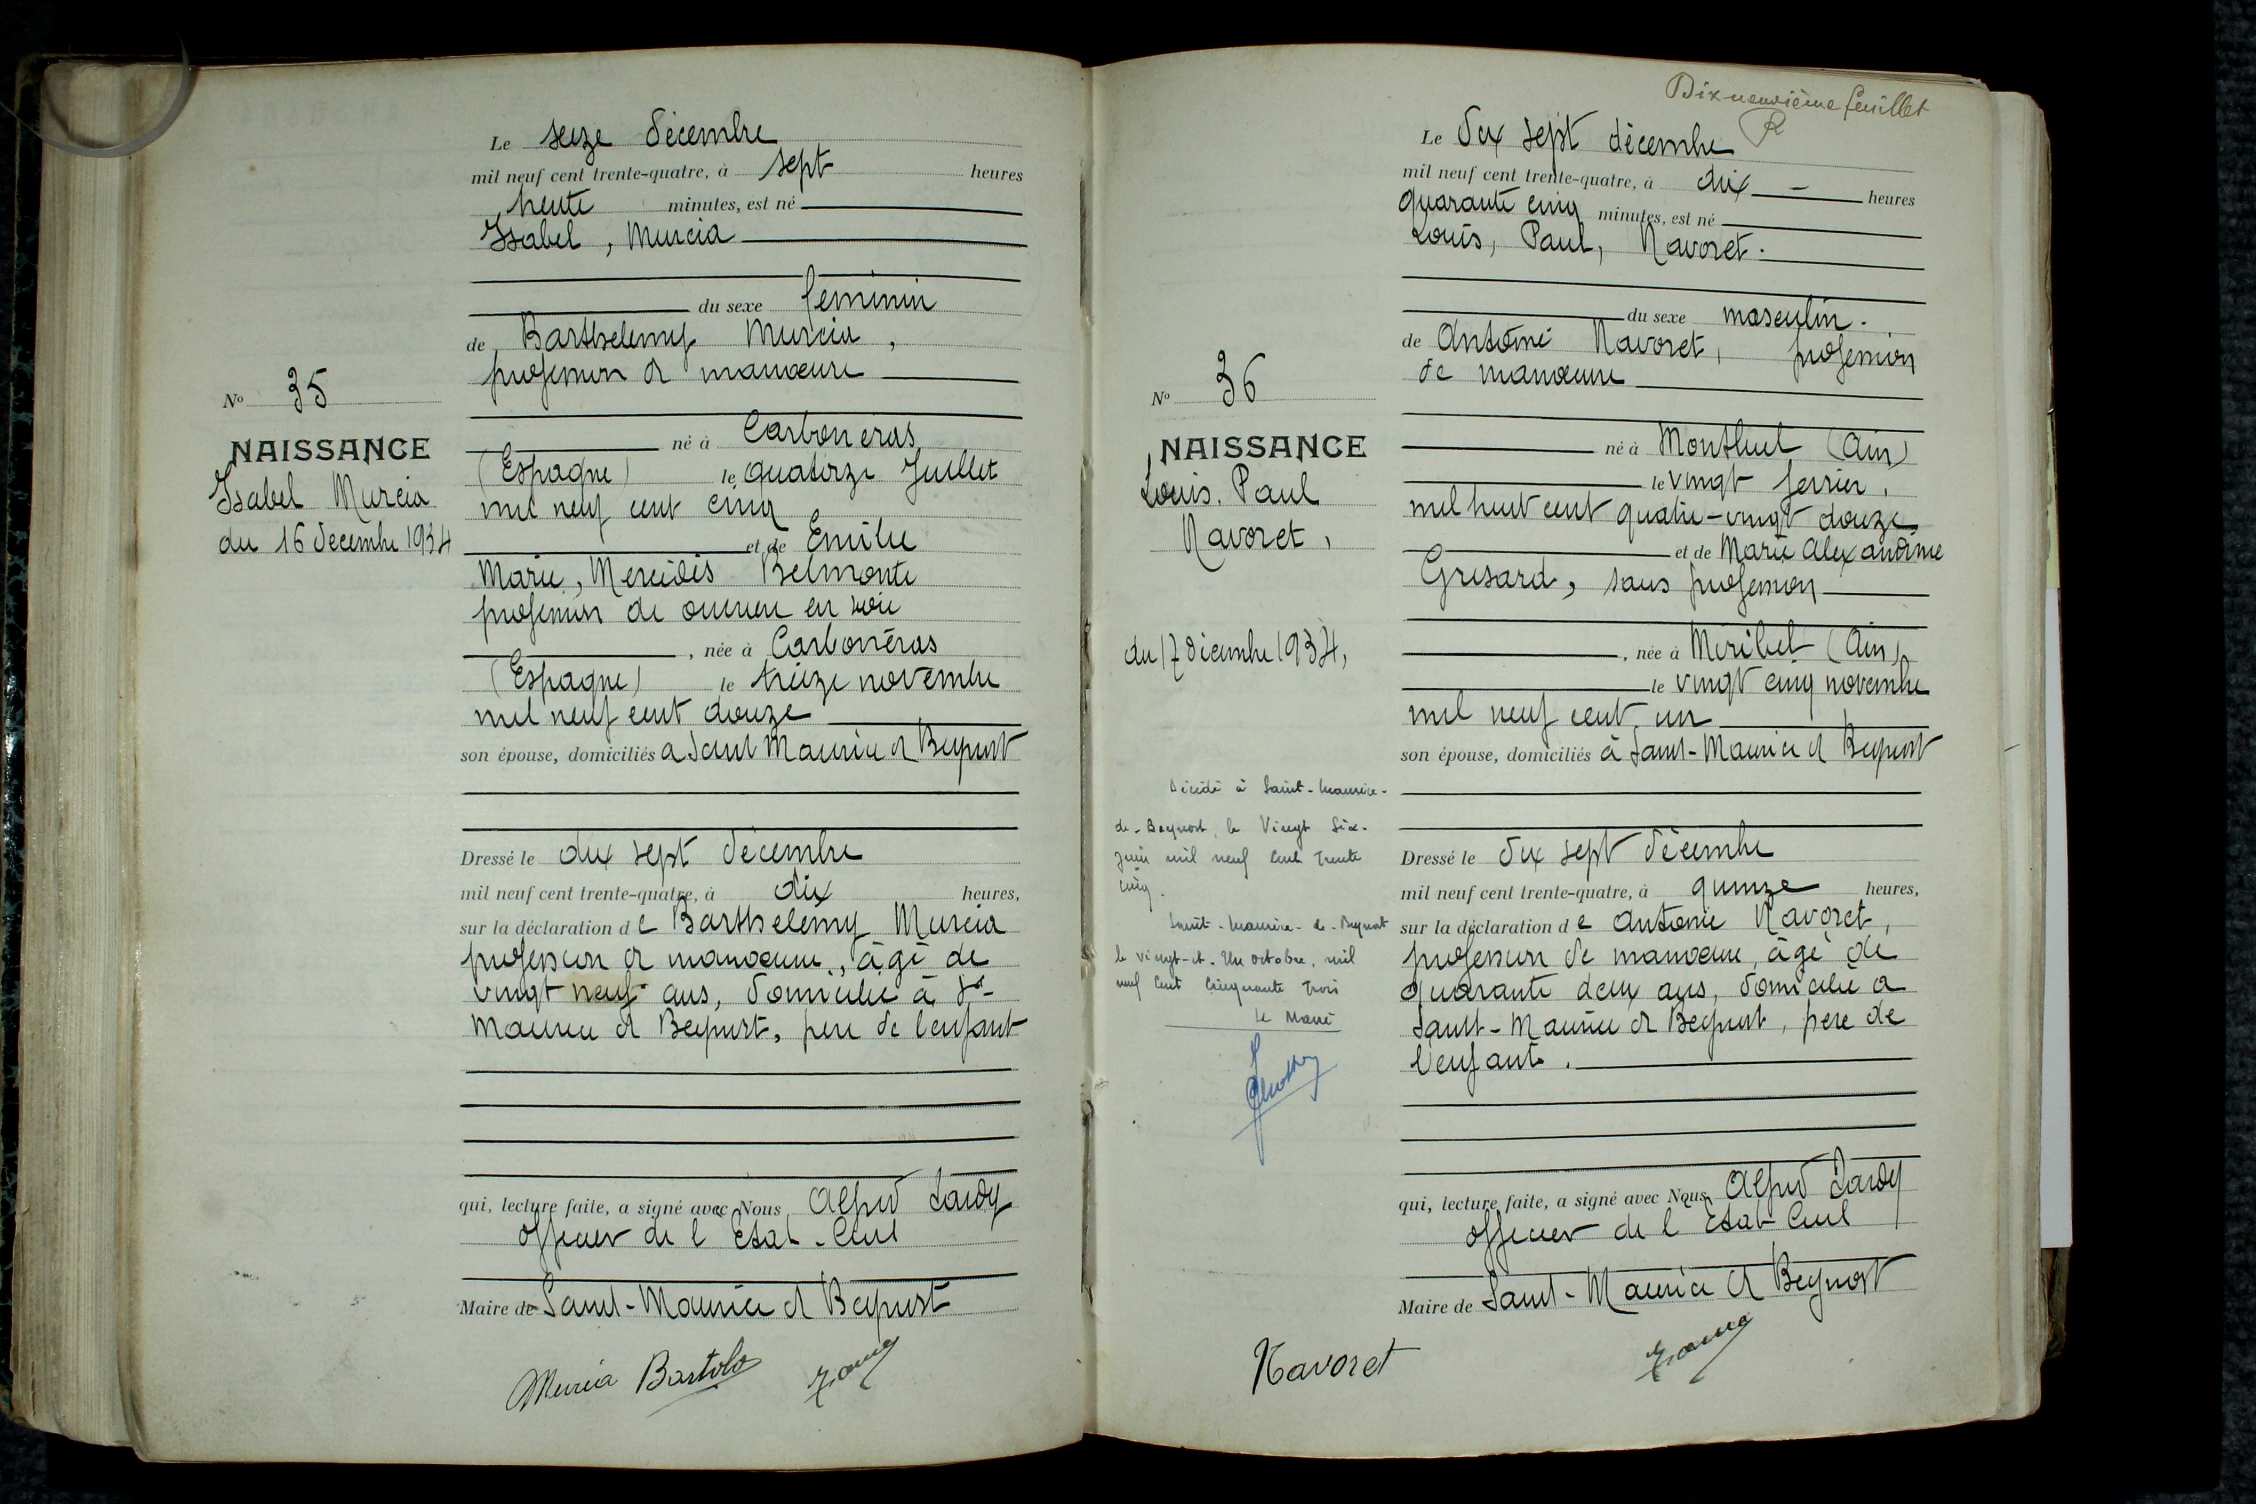 Le seize décembre
mil neuf cent trente-quatre, à sept heures
trente minutes, est né
Isabel, Murcia
du sexe feminin
de Barthelemy Murcia,
profession de manœuvre
No 35
NAISSANCE
Isabel Murcia
du 16 décembre 1934
né à Carboneras
(Espagne) le quatorze Juillet
mil neuf cent cinq
et de Emilie
Marie, Mercédès Belmonte
profession de ouvrière en soie
, née à Carbonéras
(Espagne) le treize novembre
mil neuf cent douze
son épouse, domiciliés a Saint Maurice de Beynost
Dressé le dix sept décembre
mil neuf cent trente-quatre, à dix heures,
sur la déclaration de Barthelémy Murcia
profession de manœuvre, âgé de
vingt neuf ans, domicilié à St-
Maurice de Beynost, père de l'enfant
qui, lecture faite, a signé avec Nous Alfred Lardy
officier de l'Etat-Civil
Maire de Saint-Maurice de Beynost
Murcia Bartolo
Dix neuvième feuillet
Le dix sept décembre
mil neuf cent trente-quatre, à dix - heures
quarante cinq minutes, est né
Louis, Paul, Navoret.
du sexe masculin.
de Antoine Navoret, profession
de manœuvre
No 36
NAISSANCE
Louis. Paul
Navoret,
du 17 décembre 1934,
né à Montluel (Ain)
le vingt fevrier,
mil huit cent quatre-vingt douze
et de Marie Alexandrine
Grisard, sans profession
, née à Miribel (Ain)
le vingt cinq novembre
mil neuf cent un
son épouse, domiciliés à Saint-Maurice de Beynost
Décédé à Saint-Maurice-
de-Beynost, le Vingt Six-
Juin mil neuf Cent Trente
Cinq.
Saint-Maurice-de-Beynost
le vingt-et-Un octobre, mil
neuf Cent Cinquante Trois
Le Maire
Dressé le dix sept décembre
mil neuf cent trente-quatre, à quinze heures,
sur la déclaration de Antoine Navoret,
profession de manœuvre, âgé de
quarante deux ans, domicilié a
Saint-Maurice de Beynost, père de
l'enfant.
qui, lecture faite, a signé avec Nous, Alfred Lardy
officier de l'Etat-Civil
Maire de Saint-Maurice de Beynost
Navoret